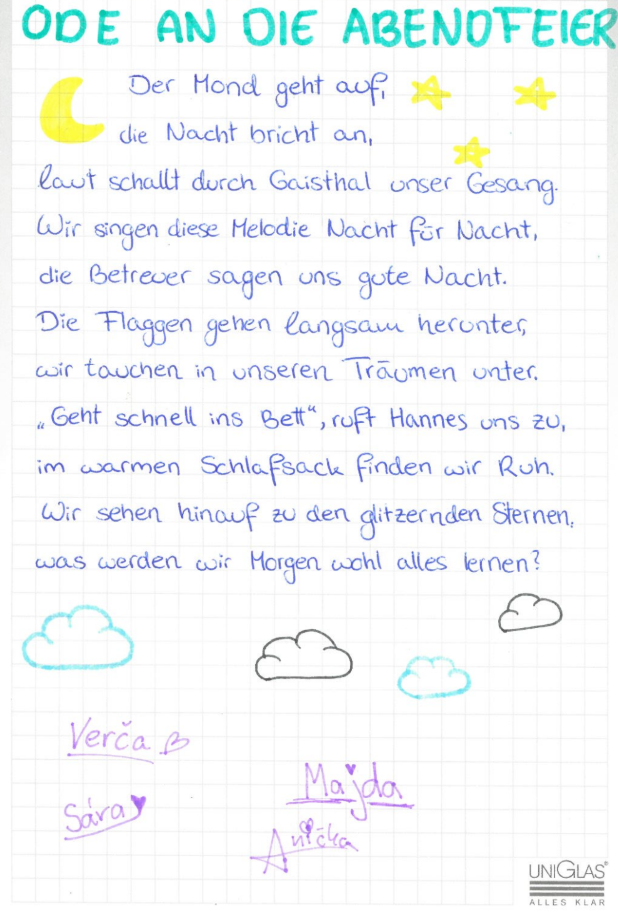 ODE AN DIE ABENDFEIER
Der Mond geht auf,
die Nacht bricht an,
laut schallt durch Gaisthal unser Gesang.
Wir singen diese Melodie Nacht für Nacht,
die Betreuer sagen uns gute Nacht.
Die Flaggen gehen langsam herunter,
wir tauchen in unseren Träumen unter.
„Geht schnell ins Bett“, ruft Hannes uns zu,
im warmen Schlafsack finden wir Ruh.
Wir sehen hinauf zu den glitzernden Sternen,
was werden wir Morgen wohl alles lernen?
Verča B
Majda
Sára
Anička
UNIGLAS®
ALLES KLAR